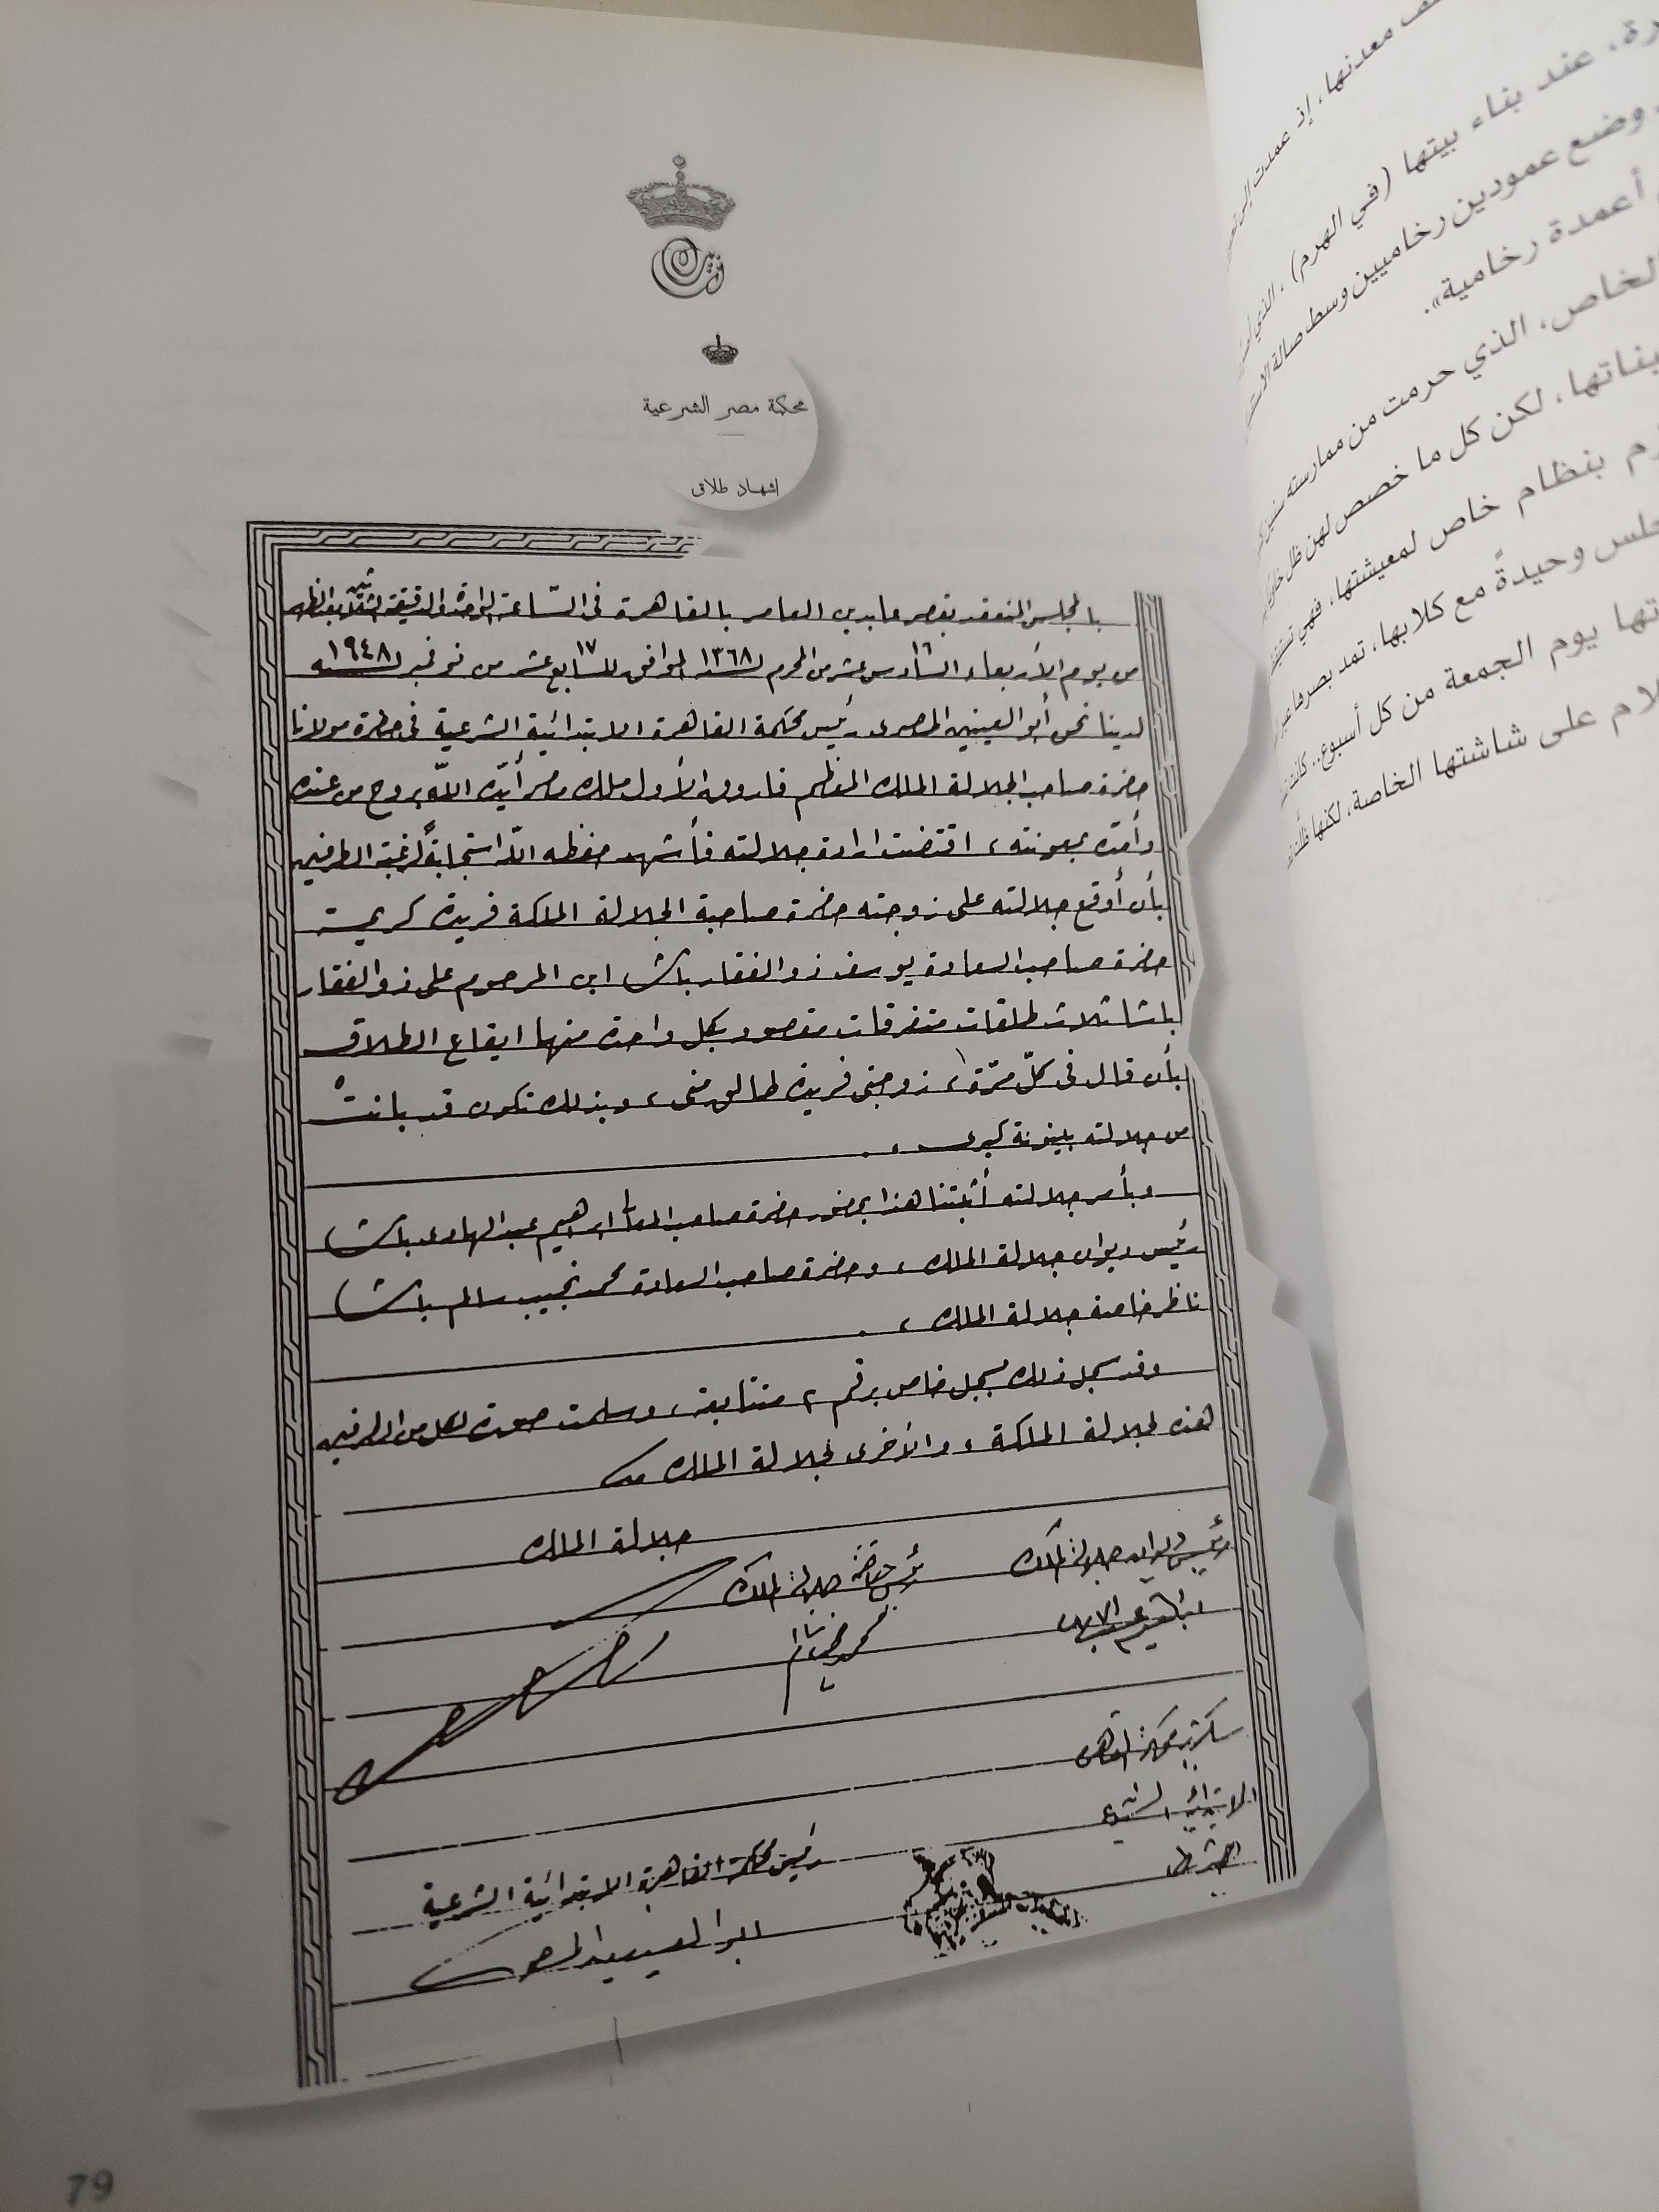 محكمة مصر الشرعية
اشهاد طلاق
بالمجلس المنعقد بقصر عابدين العامر بالقاهرة فى الساعة الواحدة والدقيقة بعد الظهر
من يوم الأربعاء السادس عشر ١٦ من المحرم سنة ١٣٦٨ الموافق للسابع عشر ١٧ من نوفمبر سنة ١٩٤٨
لدينا نحن أبو العينين المصرى رئيس محكمة القاهرة الابتدائية الشرعية فى حضرة مولانا
حضرة صاحب الجلالة الملك المعظم فاروق الأول ملك مصر أيّده اللّه بروح من عنده
وأمدّه بمعونته، اقتضت ارادة جلالته فأشهد حفظه اللّه استجابةً لرغبة الطرفين
بأن أوقع جلالته على زوجته حضرة صاحبة الجلالة الملكة فريدة كريمة
حضرة صاحب السعادة يوسف ذو الفقار باشا ابن المرحوم على ذو الفقار
باشا ثلاث طلقات متفرقات مقصود بكل واحدة منها ايقاع الطلاق
بأن قال فى كلّ مرّة، زوجتى فريدة طالق منى، وبذلك تكون قد بانت
من جلالته بينونة كبرى.
وبأمر جلالته أثبتنا هذا بحضور حضرة صاحب المعالى ابرهيم عبد الهادى باشا
رئيس ديوان جلالة الملك، وحضرة صاحب السعادة محمد نجيب سالم باشا
ناظر خاصة جلالة الملك،.
وقد سجل ذلك بسجل خاص برقم ٢ متتابعة، وسلمت صورة لكل من الطرفين
هذه لجلالة الملكة، والأخرى لجلالة الملك
جلالة الملك
رئيس ديوان جلالة الملك
جلالة الملك
سكرتير محكمة القاهرة
الابتدائية الشرعية
رئيس محكمة القاهرة الابتدائية الشرعية
ابو العينين المصرى
79
معدنها، إذ عمدت إلى
عند بناء بيتها (في الهرم)، الذي
وضع عمودين رخاميين وسط صالة
أعمدة رخامية».
الخاص، الذي حرمت من ممارسته
لكن كل ما خصص لهن ظل
بنظام خاص لمعيشتها، فهي
وحيدةً مع كلابها، تمد بصرها
يوم الجمعة من كل أسبوع.. كانت
على شاشتها الخاصة، لكنها